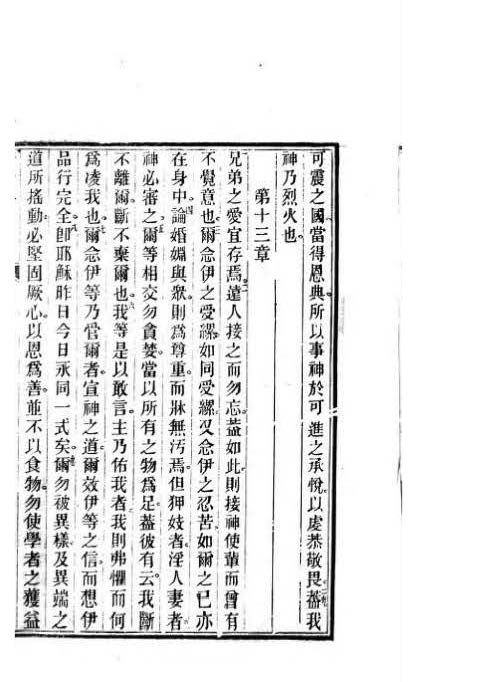 可震之國當得恩典所以事神於可進之承悅以處恭敬畏葢我
神乃烈火也
第十三章
兄弟之愛宜存焉遠人接之而勿忘葢如此則接神使輩而曾有
不覺意也爾念伊之受縲如同受縲又念伊之忍苦如爾之己亦
在身中論婚姻與眾則為尊重而牀無汚焉但狎妓者淫人妻者
神必審之爾等相交勿貪婪當以所有之物為足葢彼有云我斷
不離爾斷不棄爾也我等是以敢言主乃佑我者我則弗懼而何
為凌我也爾念伊等乃管爾者宣神之道爾效伊等之信而想伊
品行完全卽耶穌昨日今日永同一式矣爾勿被異樣及異端之
道所搖動必堅固厥心以恩為善並不以食物勿使學者之獲益